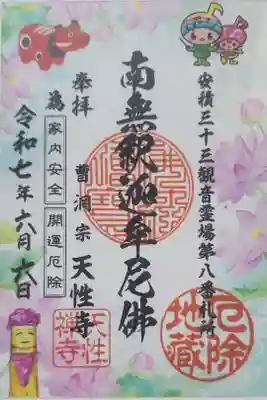 安積三十三観音霊場第八番札所
南無釈迦牟尼佛
奉拝
曹洞宗 天性寺
為
家内安全
開運厄除
令和七年六月六日
厄除
地蔵
天性
禅寺